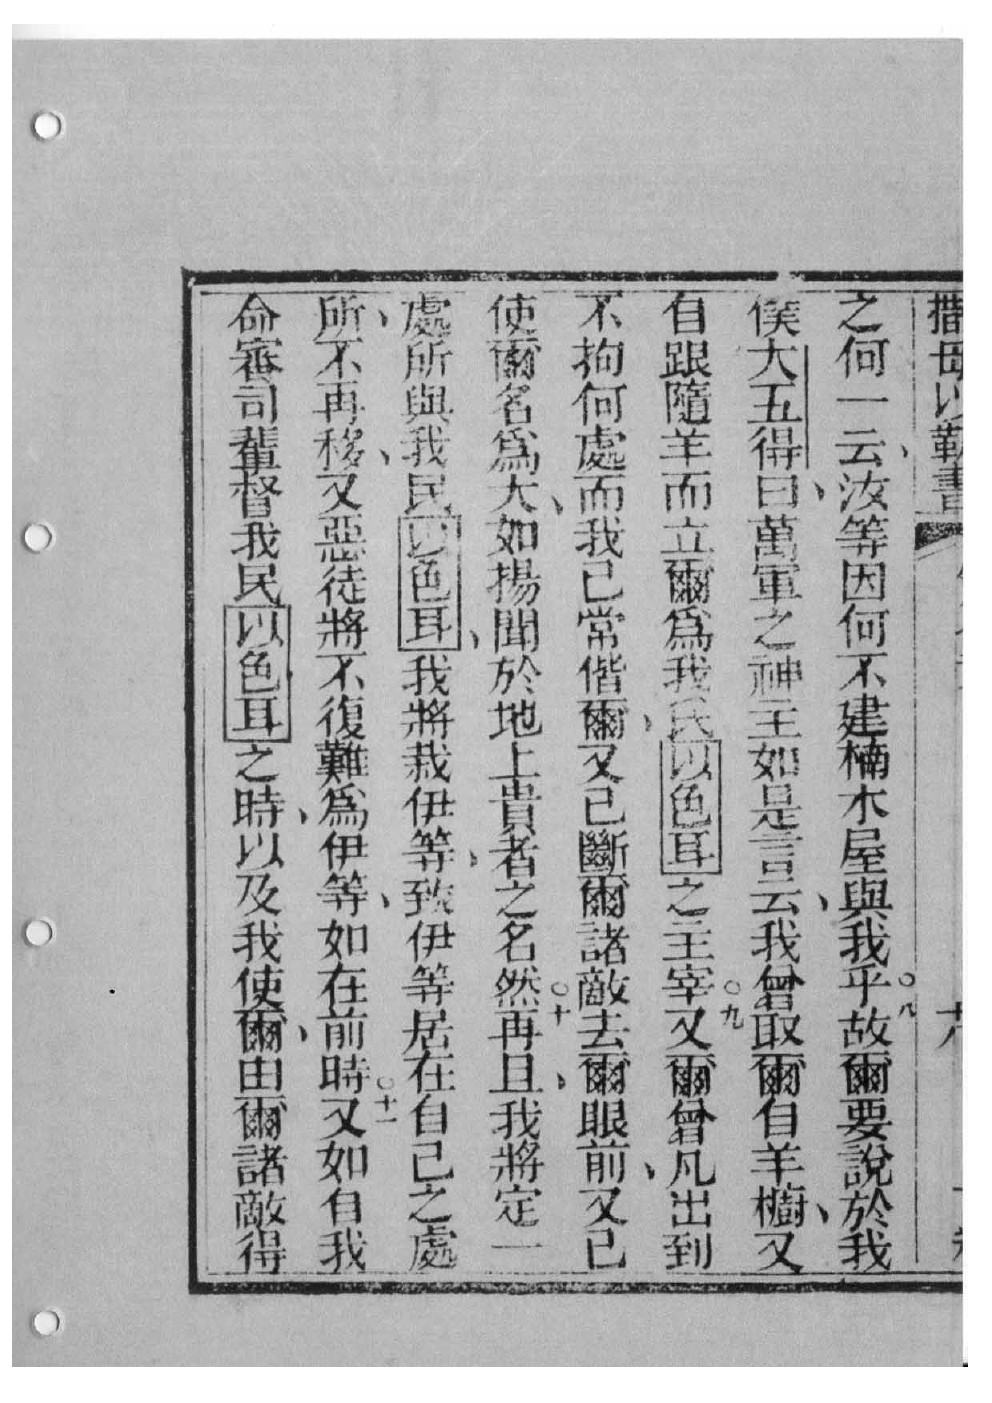 撒母以勒書
之何一云、汝等因何不建楠木屋與我乎。八故爾要說於我
僕大五得曰、萬軍之神主如是言云、我曾取爾自羊櫥、又
自跟隨羊而立爾爲我民以色耳之主宰。九又爾曾凡出到
不拘何處而我已常偕爾、又已斷爾諸敵去爾眼前、又已
使爾名爲大、如揚聞於地上貴者之名。十然再且、我將定一
處所與我民以色耳、我將栽伊等、致伊等居在自己之處
所、不再移、又惡徒將不復難爲伊等、如在前時。十一又如自我
命審司輩督我民以色耳之時、以及我使爾、由爾諸敵得